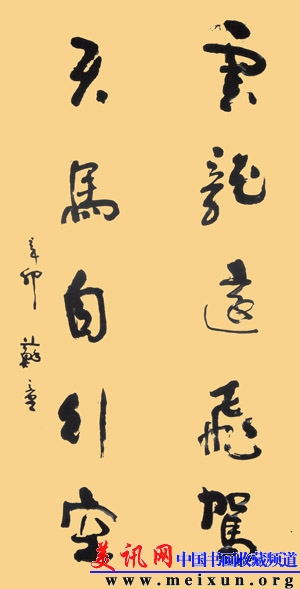 雲龍遠飛駕
天馬自行空
辛卯 蘇童
美讯网 中国书画收藏频道
www.meixun.org